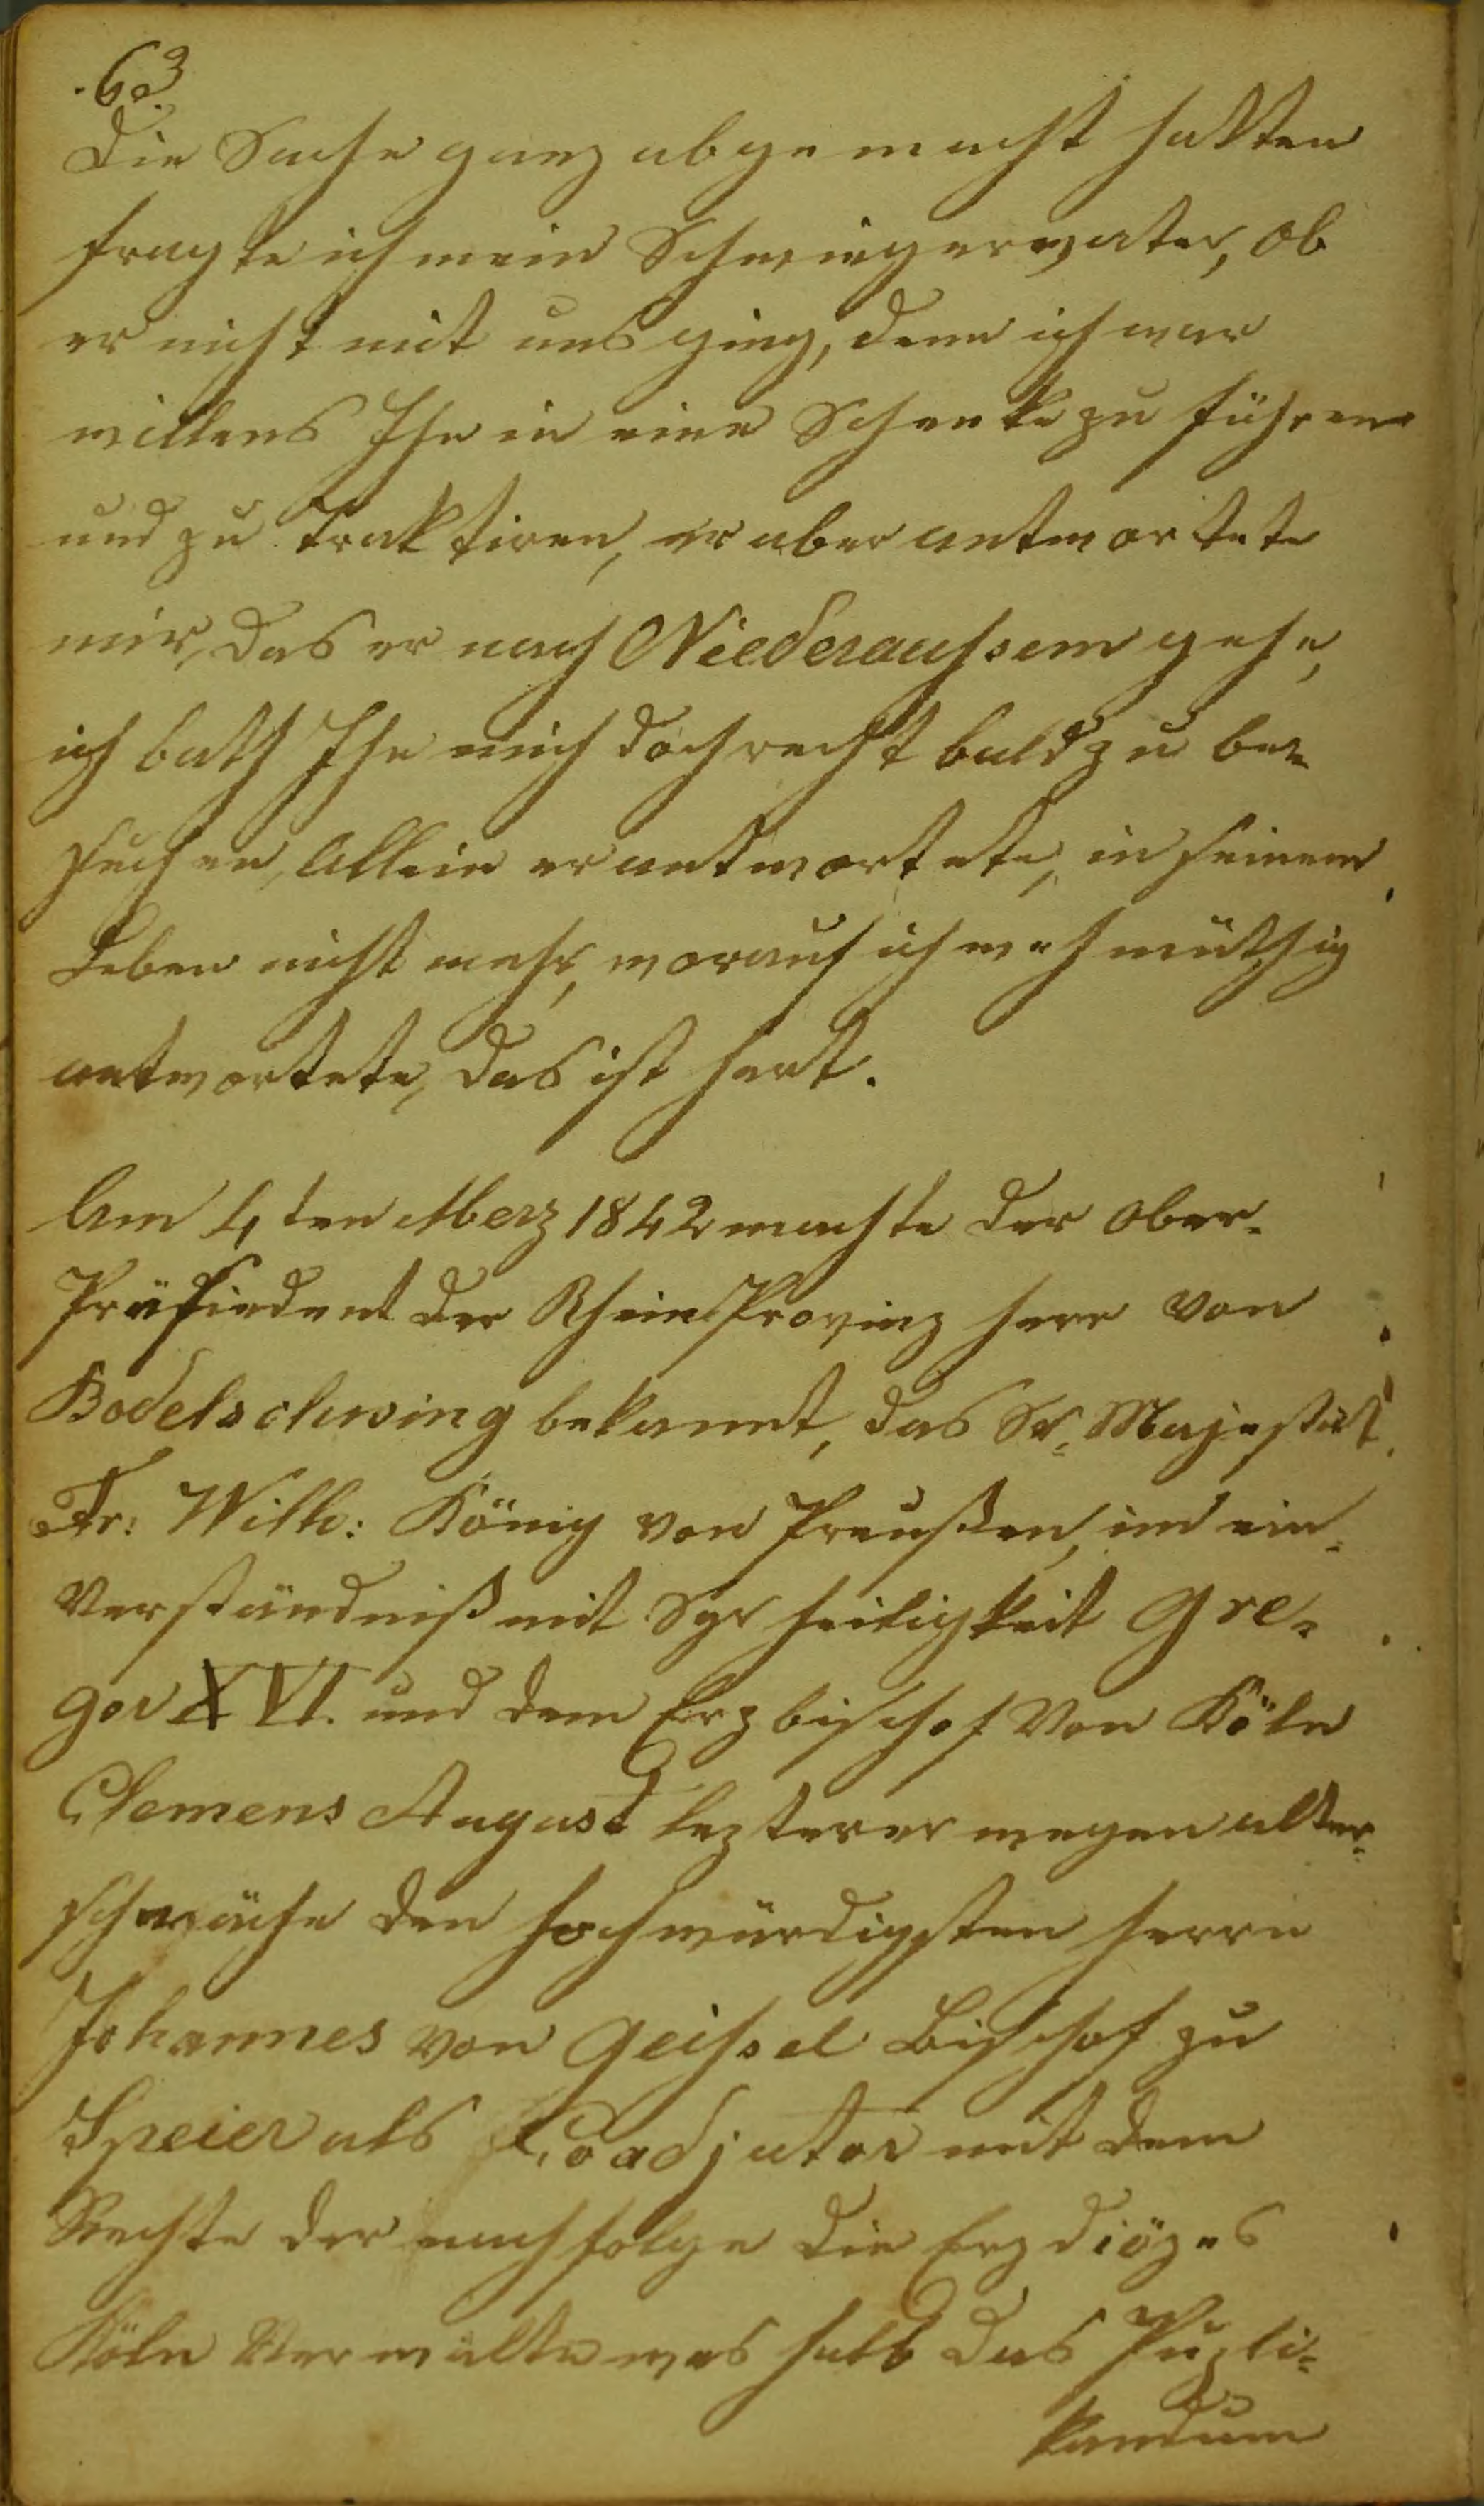 63
Die Sache ganz abgemacht hatten
fragte ich mein Schwiegervater, ob
er nicht mit uns ging, denn ich war
willens Ihn in eine Schenke zu führen
und zu Traktiren, er aber antwortete
mir, das er nach Niederaussem gehe,
ich bath Ihn mich doch recht bald zu be=
suchen, Allein er antwortete, in seinem
Leben nicht mehr, worauf ich wehmüthig
antwortete, das ist hart.
Am 4ten Merz 1842 machte der Ober=
Präsiedent der Rhein Provinz Herr von
Bodelschwing bekannt, das Sr. Majestät
Fr: Wilh: König von Preußen, im ein=
verständniß mit Syr Heiligkeit Gre=
gor XVI. und dem Erzbischof Von Köln
Clemens August lezterer wegen alter=
schwäche den hochwürdigsten Herrn
Johannes von Geissel Bischof zu
Speier als Coadjutor mit dem
Rechte der nachfolge die Erzdiözes
Köln Verwalte weshalb das Publi=
kandum